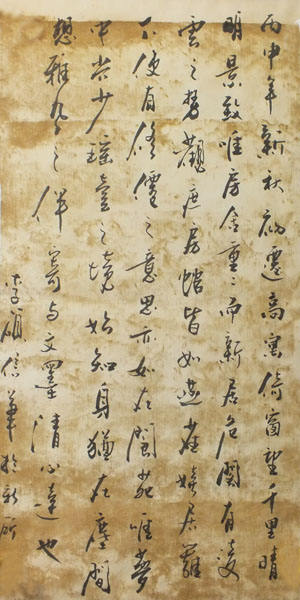 丙申年新秋初遷高寓倚窗望千里晴
明景致唯房舍重重而新居危閣有凌
雲之勢觀庶房悟皆如燕雀嬉居羅
不便有修僊之意思亦如在閬苑唯夢
中尚少瑤臺之境始知身猶在塵間
想雅久之伴寄与文墨清心達也
李順信筆於新所